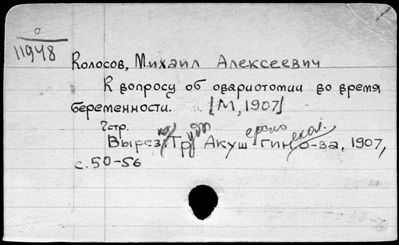 11948
Колосов, Михаил Алексеевич
К вопросу об овариотомии во время
беременности. [М, 1907]
7стр.
Вырез. Тру Акуш Гин. о-ва, 1907,
с. 50-56